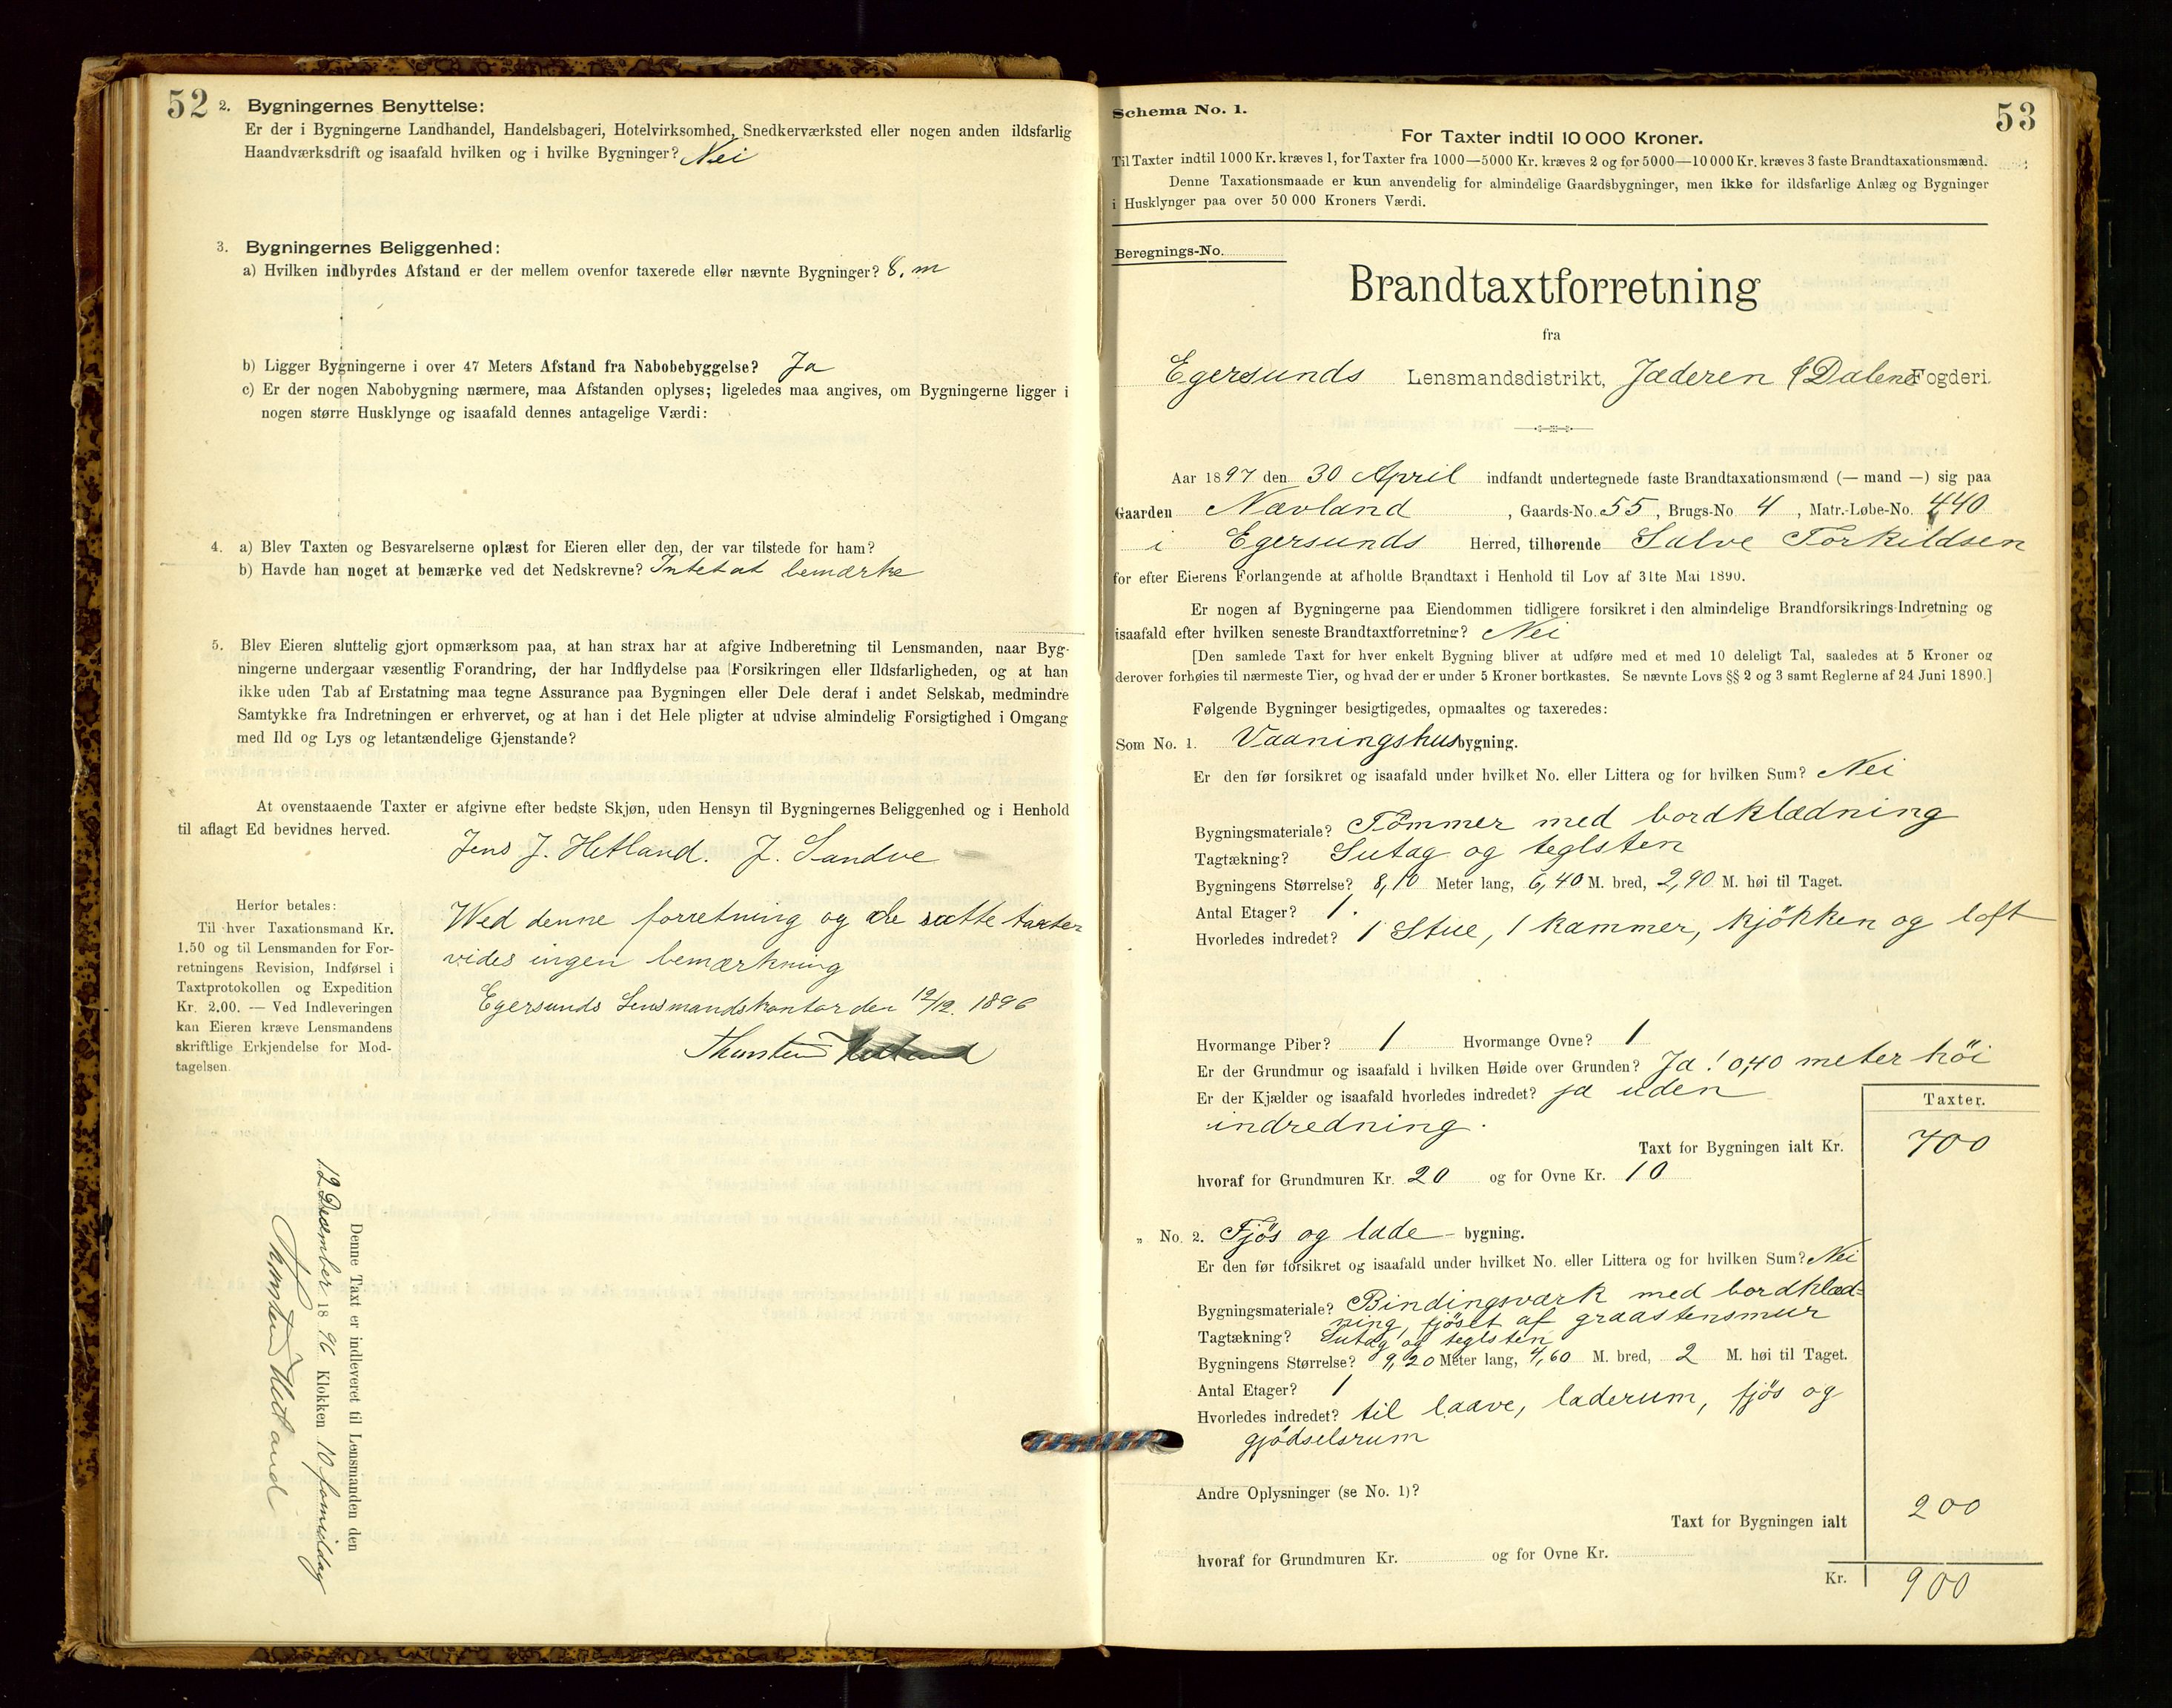 52
2. Bygningernes Benyttelse:
Er der i Bygningerne Landhandel, Handelsbageri, Hotelvirksomhed, Snedkerværksted eller nogen anden ildsfarlig
Haandværksdrift og isaafald hvilken og i hvilke Bygninger? Nei
3. Bygningernes Beliggenhed:
a) Hvilken indbyrdes Afstand er der mellem ovenfor taxerede eller nævnte Bygninger? 8. m
b) Ligger Bygningerne i over 47 Meters Afstand fra Nabobebyggelse? Ja
c) Er der nogen Nabobygning nærmere, maa Afstanden oplyses; ligeledes maa angives, om Bygningerne ligger i
nogen større Husklynge og isaafald dennes antagelige Værdi:
4. a) Blev Taxten og Besvarelserne oplæst for Eieren eller den, der var tilstede for ham?
b) Havde han noget at bemærke ved det Nedskrevne? Intet at bemærke
5. Blev Eieren sluttelig gjort opmærksom paa, at han strax har at afgive Indberetning til Lensmanden, naar Byg-
ningerne undergaar væsentlig Forandring, der har Indflydelse paa Forsikringen eller Ildsfarligheden, og at han
ikke uden Tab af Erstatning maa tegne Assurance paa Bygningen eller Dele deraf i andet Selskab, medmindre
Samtykke fra Indretningen er erhvervet, og at han i det Hele pligter at udvise almindelig Forsigtighed i Omgang
med Ild og Lys og letantændelige Gjenstande?
At ovenstaaende Taxter er afgivne efter bedste Skjøn, uden Hensyn til Bygningernes Beliggenhed og i Henhold
til aflagt Ed bevidnes herved.
Jens J. Hetland. J. Sandve
Herfor betales:
Til hver Taxationsmand Kr.
1.50 og til Lensmanden for For-
retningens Revision, Indførsel i
Taxtprotokollen og Expedition
Kr. 2.00. — Ved Indleveringen
kan Eieren kræve Lensmandens
skriftlige Erkjendelse for Mod-
tagelsen.
Wed denne forretning og de satte taxter
vides ingen bemærkning
Egersunds Lensmandskontor den 12/12. 1896
Thorstein Hetland
Denne Taxt er indleveret til Lensmanden den
12 December 1896 Klokken 10 formiddag
Thorstein Hetland
53
Schema No. 1.
For Taxter indtil 10 000 Kroner.
Til Taxter indtil 1000 Kr. kræves 1, for Taxter fra 1000—5000 Kr. kræves 2 og for 5000—10 000 Kr. kræves 3 faste Brandtaxationsmænd.
Denne Taxationsmaade er kun anvendelig for almindelige Gaardsbygninger, men ikke for ildsfarlige Anlæg og Bygninger
i Husklynger paa over 50 000 Kroners Værdi.
Beregnings-No.
Brandtaxtforretning
fra
Egersunds Lensmandsdistrikt, Jæderen & Dalene Fogderi.
Aar 1897 den 30 April indfandt undertegnede faste Brandtaxationsmænd (— mand —) sig paa
Gaarden Nævland, Gaards-No. 55, Brugs-No. 4, Matr.-Løbe-No. 440
i Egersunds Herred, tilhørende Salve Torkildsen
for efter Eierens Forlangende at afholde Brandtaxt i Henhold til Lov af 31te Mai 1890.
Er nogen af Bygningerne paa Eiendommen tidligere forsikret i den almindelige Brandforsikrings-Indretning og
isaafald efter hvilken seneste Brandtaxtforretning? Nei
[Den samlede Taxt for hver enkelt Bygning bliver at udføre med et med 10 deleligt Tal, saaledes at 5 Kroner og
derover forhøies til nærmeste Tier, og hvad der er under 5 Kroner bortkastes. Se nævnte Lovs §§ 2 og 3 samt Reglerne af 24 Juni 1890.]
Følgende Bygninger besigtigedes, opmaaltes og taxeredes:
Som No. 1. Vaaningshusbygning.
Er den før forsikret og isaafald under hvilket No. eller Littera og for hvilken Sum? Nei
Bygningsmateriale? Tömmer med bordklædning
Tagtækning? Sutag og teglsten
Bygningens Størrelse? 8,10 Meter lang, 6,40 M. bred, 2,90 M. høi til Taget.
Antal Etager? 1.
Hvorledes indredet? 1 Stue, 1 kammer, kjökken og loft
Hvormange Piber? 1 Hvormange Ovne? 1
Er der Grundmur og isaafald i hvilken Høide over Grunden? Ja! 0,40 meter höi
Er der Kjælder og isaafald hvorledes indredet? ja uden
indredning.
Taxter.
Taxt for Bygningen ialt Kr. 700
hvoraf for Grundmuren Kr. 20 og for Ovne Kr. 10
„ No. 2. Fjös og lade - bygning.
Er den før forsikret og isaafald under hvilket No. eller Littera og for hvilken Sum? Nei
Bygningsmateriale? Bindingsværk med bordklæd=
ning, fjöset af graastensmur
Tagtækning? Sutag og teglsten
Bygningens Størrelse? 9,20 Meter lang, 4,60 M. bred, 2 M. høi til Taget.
Antal Etager? 1
Hvorledes indredet? til laave, laderum, fjös og
gjödselsrum
Andre Oplysninger (se No. 1)?
Taxt for Bygningen ialt 200
hvoraf for Grundmuren Kr. og for Ovne Kr.
Kr. 900